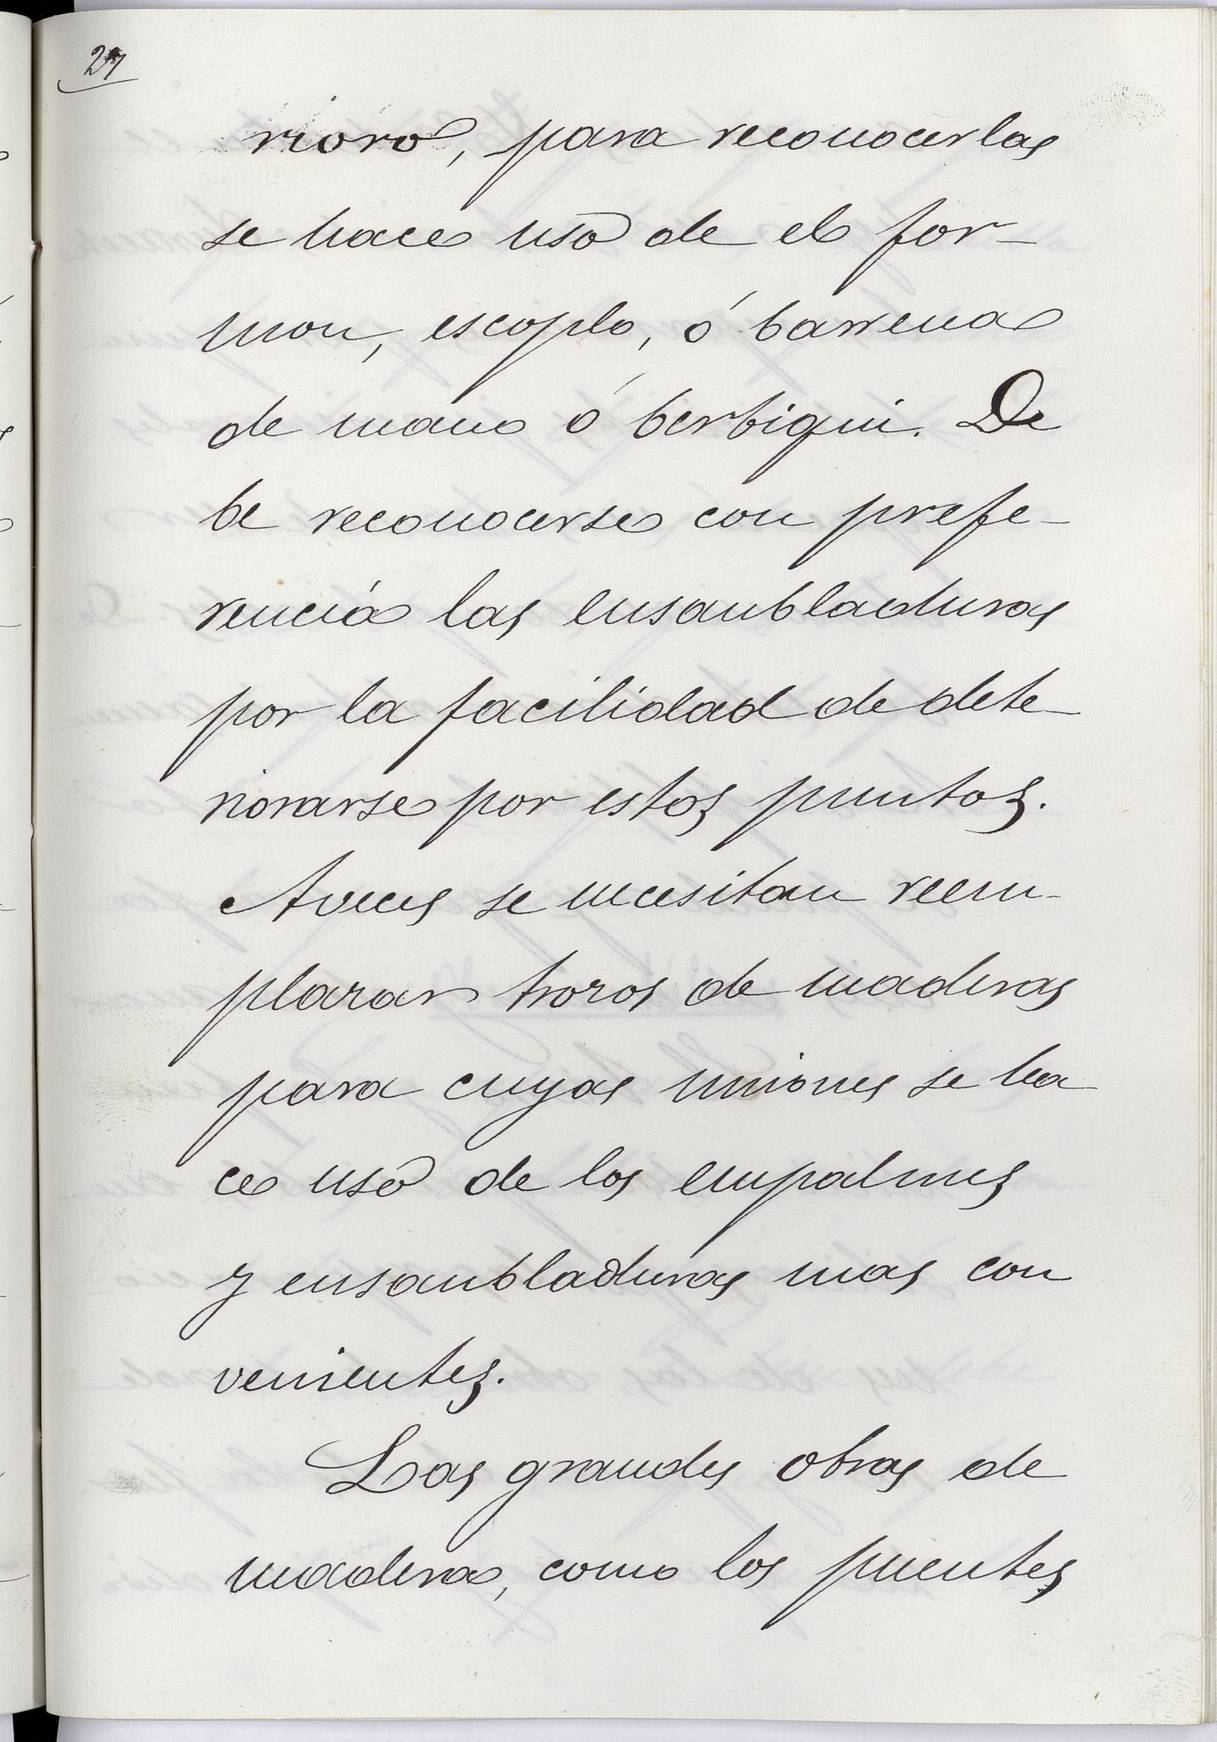 27
rioro, para reconocerlas
se hace uso de el for-
mon, escoplo, ó barrena
de mano ó berbiqui. De
be reconocerse con prefe-
rencia las ensanbladuras
por la facilidad de dete-
riorarse por estos puntos.
Aveces se necesitan reem-
plazar trozos de maderas
para cuyas uniones se ha
ce uso de los empalmes
y ensanbladuras mas con
venientes.
Las grandes obras de
madera, como los puentes